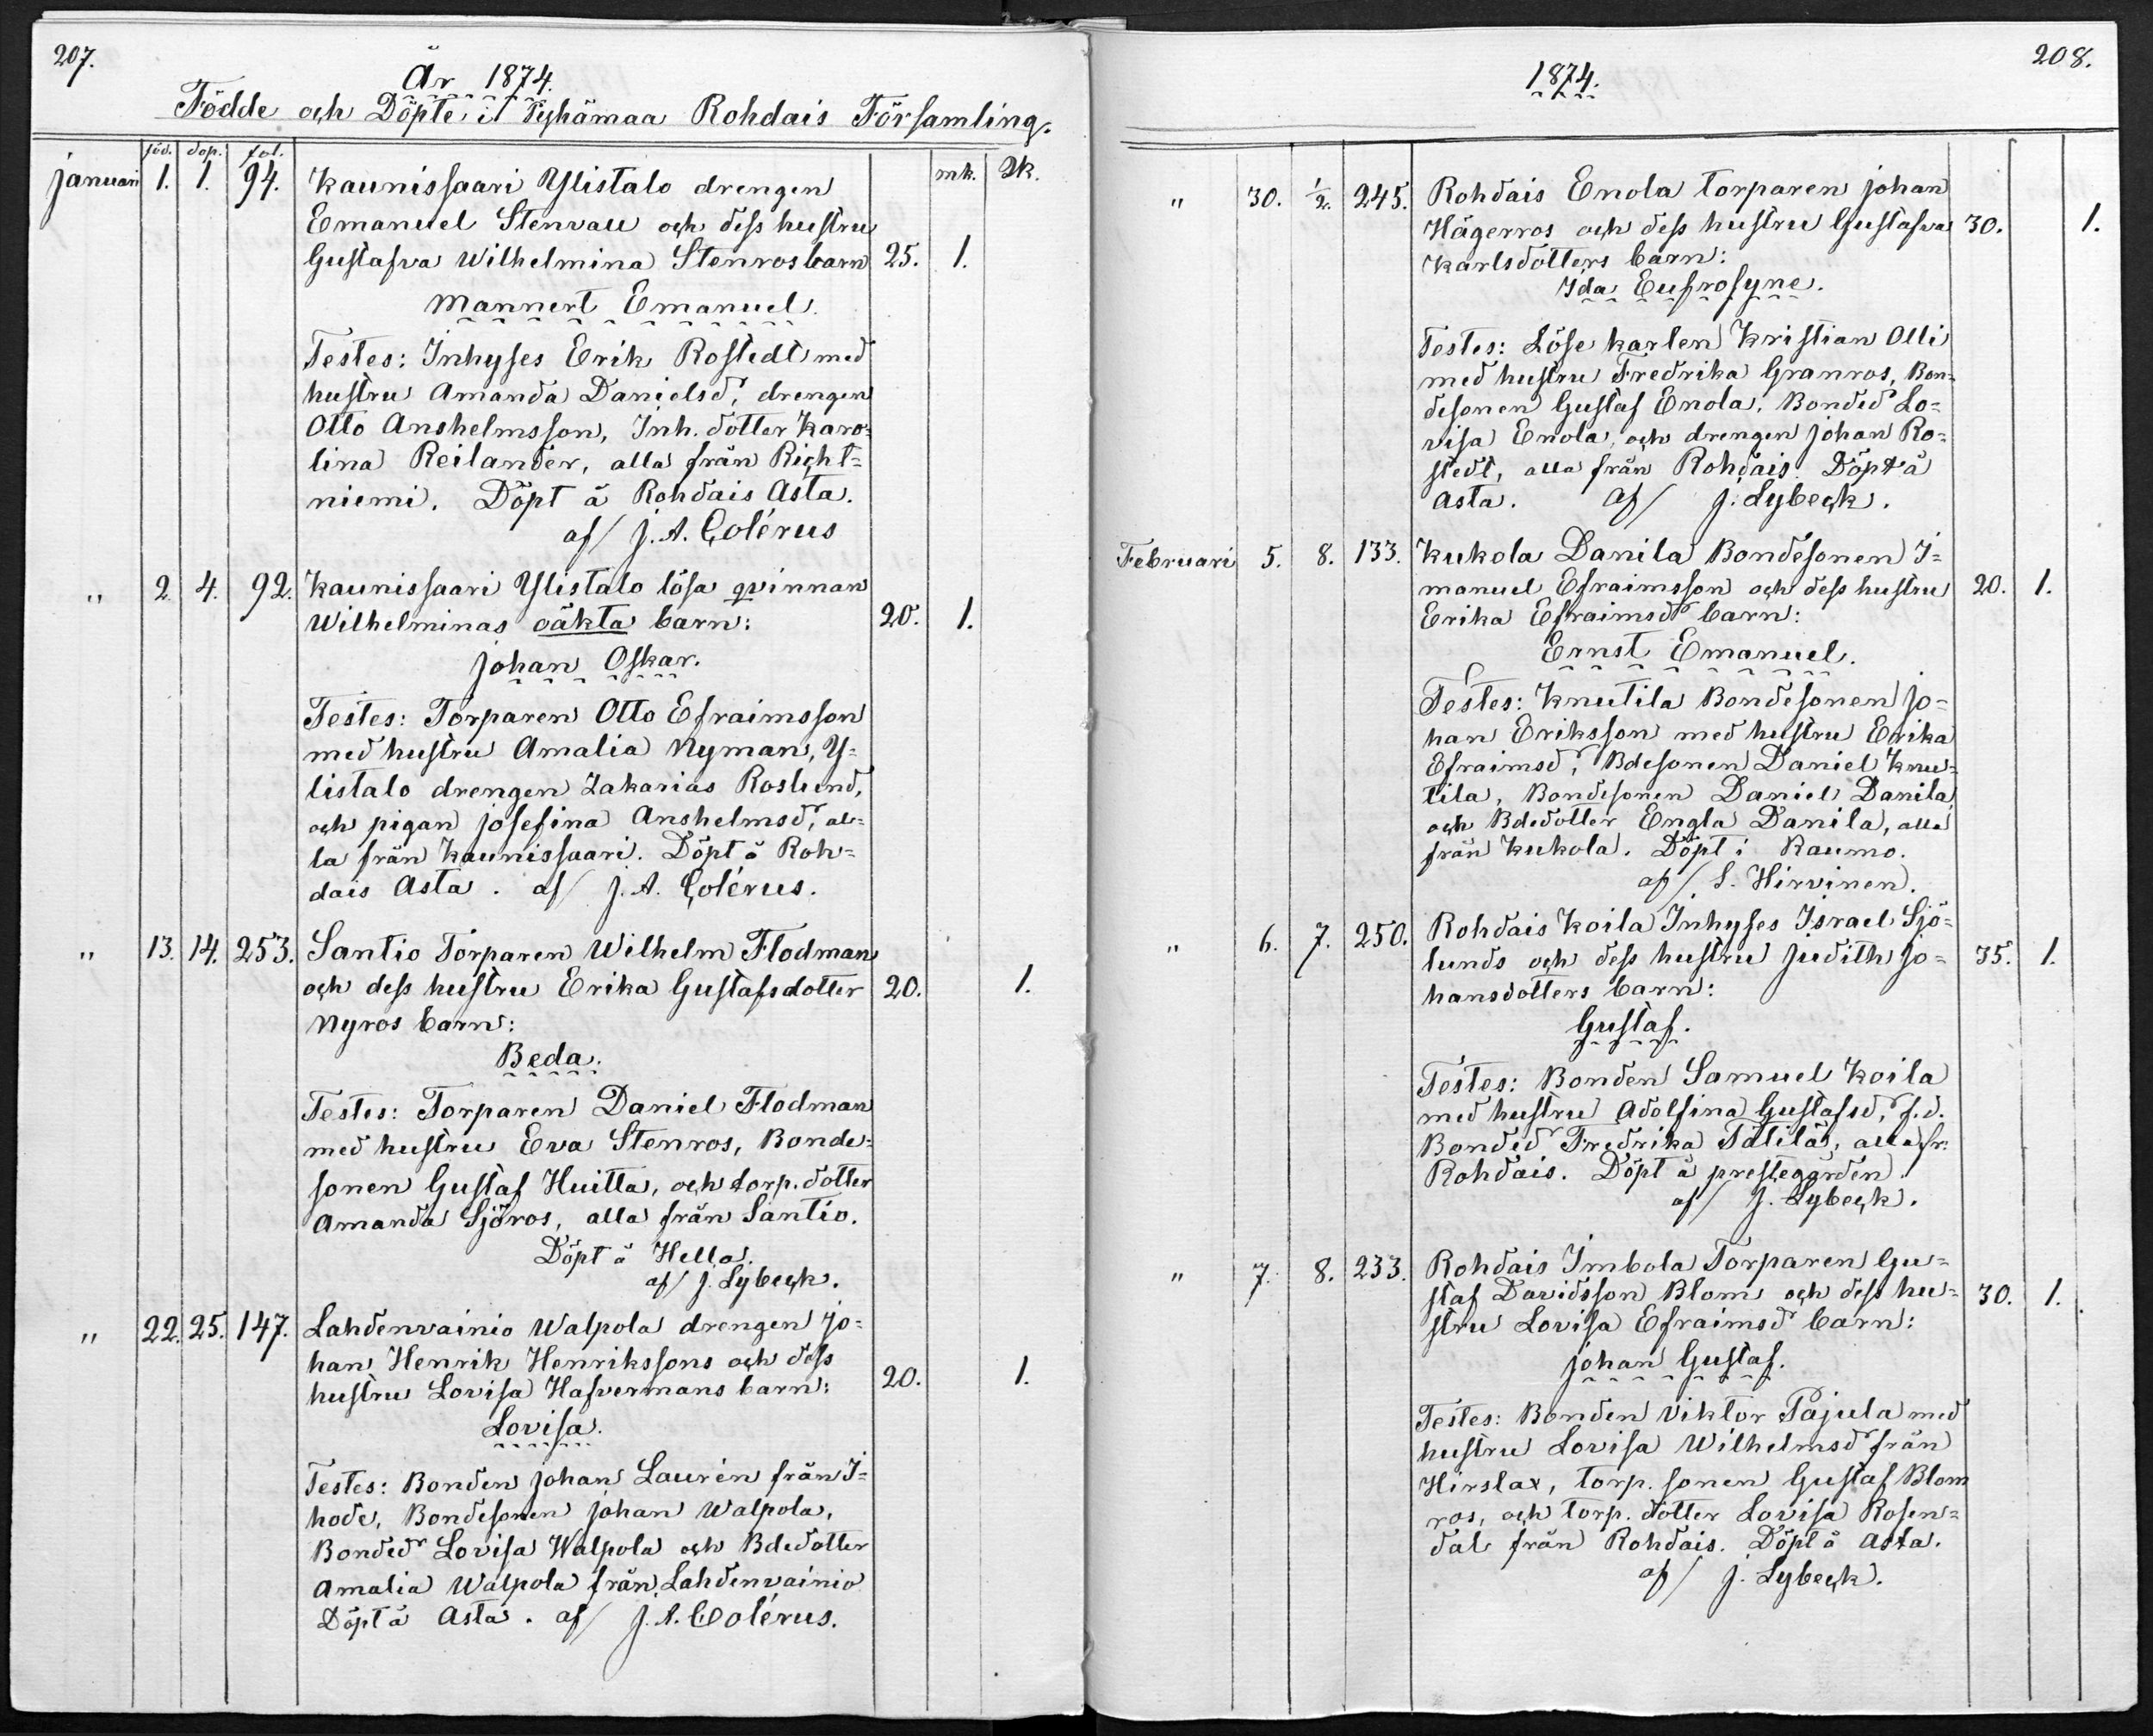 207.
År 1874.
Födde och Döpte i Pyhämaa Rohdais Församling.
föd. dop. fol. mk. Qk.
Januari 1. 1. 94. Kaunissaari Ylistalo drengen
Emanuel Stenvall och dess hustru
Gustafva Wilhelmina Stenros barn 25. 1.
Mannert Emanuel.
Testes: Inhyses Erik Rostedt med
hustru Amanda Danielsd:r, drengen
Otto Anshelmsson, Inh. dotter Karo-
lina Reilander, alla från Richt-
niemi. Döpt å Rohdais Asta.
af/ J. A. Colérus
" 2. 4. 92. Kaunissaari Ylistalo lösa qvinnan
Wilhelminas oäkta barn: 20. 1.
Johan Oskar.
Testes: Torparen Otto Efraimsson
med hustru Amalia Nyman, Y-
listalo drengen Zakarias Roslund,
och pigan Josefina Anshelmsd:r, al-
la från Kaunissaari. Döpt å Roh-
dais Asta. af/ J. A. Colérus.
" 13. 14. 253. Santio Torparen Wilhelm Flodman
och dess hustru Erika Gustafsdotter 20. 1.
Nyros barn:
Beda.
Testes: Torparen Daniel Flodman
med hustru Eva Stenros, Bonde-
sonen Gustaf Huitta, och torp. dotter
Amanda Sjöros, alla från Santio.
Döpt å Hello.
af/ J. Lybeck.
" 22. 25. 147. Lahdenvainio Walpola drengen Jo-
han Henrik Henrikssons och dess
hustru Lovisa Hafvermans barn: 20. 1.
Lovisa.
Testes: Bonden Johan Laurén från I-
hode, Bondesonen Johan Walpola,
Bonded:r Lovisa Walpola och Bdedotter
Amalia Walpola från Lahdenvainio
Döpt å Asta. af/ J. A. Colérus.
208.
1874.
" 30. 1/2. 245. Rohdais Enola torparen Johan
Hägerros och dess hustru Gustafva 30. 1.
Karlsdotters barn:
Ida Eufrosyne.
Testes: Löse karlen Kristian Olli
med hustru Fredrika Granros, Bon-
desonen Gustaf Enola, Bonded:r Lo-
visa Enola, och drengen Johan Ro-
stedt, alla från Rohdais. Döpt å
Asta. af/ J. Lybeck.
Februari 5. 8. 133. Kukola Danila Bondesonen I-
manuel Efraimsson och dess hustru 20. 1.
Erika Efraimsd:r barn:
Ernst Emanuel.
Testes: Knutila Bondesonen Jo-
han Eriksson med hustru Erika
Efraimsd:r, Bdesonen Daniel Knu-
tila, Bondesonen Daniel Danila
och Bdedotter Engla Danila, alla
från Kukola. Döpt i Raumo.
af/ S. Hirvinen.
" 6. 7. 250. Rohdais Koila Inhyses Israel Sjö-
lunds och dess hustru Judith Jo- 35. 1.
hansdotters barn:
Gustaf.
Testes: Bonden Samuel Koila
med hustru Adolfina Gustafsd:r, f.d.
Bonded:r Fredrika Tätilä, alla fr.
Rohdais. Döpt å prestegården
af/ J. Lybeck.
" 7. 8. 233. Rohdais Imbola Torparen Gu-
staf Davidsson Blom och dess hu- 30. 1.
stru Lovisa Efraimsd:r barn:
Johan Gustaf.
Testes: Bonden Viktor Pajula med
hustru Lovisa Wilhelmsd:r från
Hirslax, torp. sonen Gustaf Blom
ros, och torp. dotter Lovisa Rosen-
dal från Rohdais. Döpt å Asta.
af/ J. Lybeck.